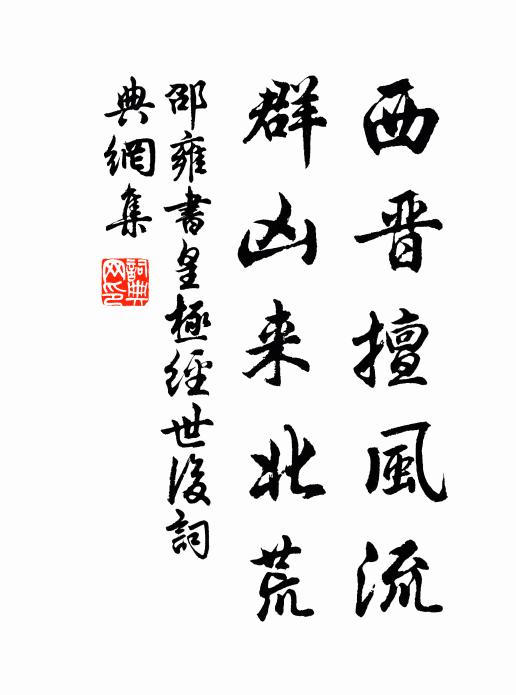 西晋擅風流
群凶来北荒
邵雍書皇極經世後詞
典網集
詞典网印